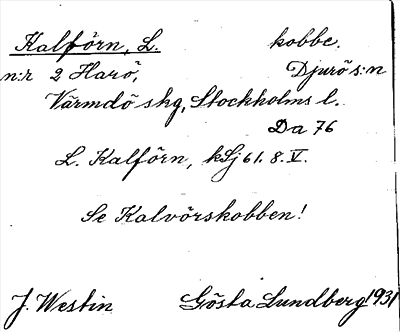 Kalförn, L. kobbe.
n:r 2 Harö, Djurö s:n
Värmdö skg, Stockholms l.
Da 76
L. Kalförn, kSj 61. 8. V.
Se Kalvörskobben!
J. Westin Gösta Lundberg 1931